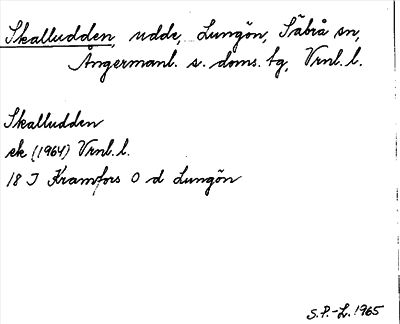 Skalludden, udde, Lungön, Säbrå sn,
Ångermanl. s. doms. tg, Vrnl. l.
Skalludden
ek (1964) Vrnl. l.
18 J Kramfors O d Lungön
S.P.-L. 1965